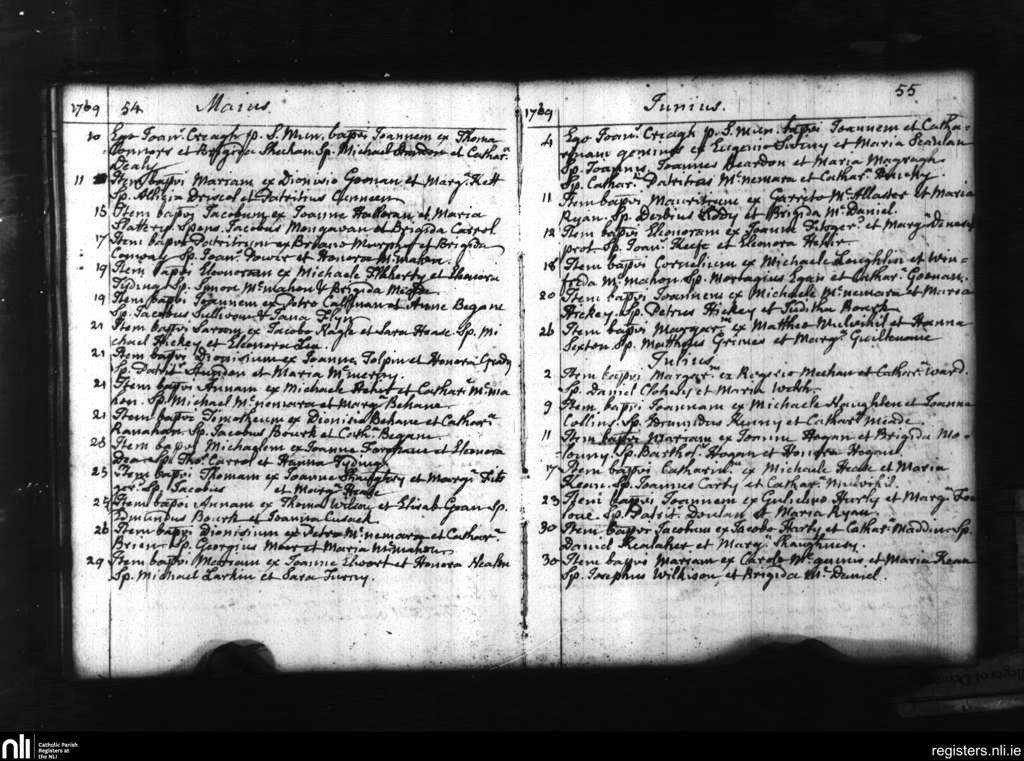 1789 54 Maius
10 Ego Joan. Creagh p. S. Mun. bapvi Joannem ex Thoma
Connors et Brigida Sheehan Sp. Michael et Cathar.
Healy
11 Item bapvi Mariam ex Dionisio Goonan et Marg. Kett
Sp. Alicia Driscol et Patritius
15 Item bapvi Jacobum ex Joanne Halloran et Maria
Slattery Spons. Jacobus Mongavan et Brigida Carrol
17 Item bapvi Patritium ex Briano Murphy et Brigida
Conway Sp. Joan. Power et Honora McMahon
19 Item bapvi Eleonoram ex Michaele et Eleonora
Sp. Simon McMahon & Brigida
19 Item bapvi Joannem ex Petro Callinan et Anne Begane
Sp. Jacobus Sullivan & Jana Flyn
21 Item bapvi Saram ex Jacobo et Sara Sp. Mi
chael Hickey et Eleonora Lea
21 Item bapvi Dionisium ex Joanne Tolpin et Honora Grady
Sp. et Maria
21 Item bapvi Annam ex Michaele et Cathar. McMa
hon. Sp. Michael McNemara et Marg. Behane
21 Item bapvi Timotheum ex Dionisio Behane et Cathar.
Ranahan Sp. Jacobus Bourk et Cath. Begane
23 Item bapvi Michaelem ex Joanne et Eleonora
Sp. Tho. Carrol et Hanna
25 Item bapvi Thomam ex Joanne Shaughnesy et Marg. Fitz
ger. Sp. Jacobus et Marg.
25 Item bapvi Annam ex Thoma Wilson et Elisab. Sp.
Edmundus Bourk et Joanna Cusack
26 Item bapvi Dionisium ex Petro McNemara et Cathar.
Brien Sp. Georgius Moer et Maria McMahon
29 Item bapvi Mariam ex Joanne et Honora
Sp. Michael Larkin et Sara
1789 Junius. 55
4 Ego Joan. Creagh p. S. Mun. bapvi Joannem et Catha-
rinam geminos ex Eugenio et Maria Scanlan
Sp. Joannis Joannes Reardon et Maria Magragh
Sp. Cathar. Patritius McNemara et Cathar.
11 Item bapvi Mauritium ex Garreto McAllaster et Maria
Ryan. Sp. Derbius Eddy et Brigida McDaniel
12 Item bapvi Eleonoram ex Joanne Fitzger. et Marg.
Sp. Joan. Keefe et Eleonora
18 Item bapvi Cornelium ex Michaele Laughlin et Win-
freda McMahon Sp. et Cathar. Goonan
20 Item bapvi Joannem ex Michaele McNemara et Maria
Hickey. Sp. Petrus Hickey et Juditha
26 Item bapvi Margar. ex Mattheo Mulvihil et Hanna
Sexton Sp. Mattheus Grimes et Marg.
Julius
2 Item bapvi Margar. ex Rogerio Meehan et Cathar. Ward
Sp. Daniel Clohesy et Maria
9 Item bapvi Joannam ex Michaele Houghlen et Joanna
Collins. Sp. Kenny et Cathar. Meade
11 Item bapvi Mariam ex Joanne Hogan et Brigida Mo-
Sp. Barthol. Hogan et Honora Hogan
17 Item bapvi Catharin. ex Michaele et Maria
Keane Sp. Joannes Carty et Cathar. Mulvihil
23 Item bapvi Joannem ex Gulielmo Hurly et Marg.
Sp. Patrit. Doolan et Maria Ryan
30 Item bapvi Jacobum ex Jacobo Harty et Cathar. Maddin Sp.
Daniel Kealaher et Marg. Shaughnesy
30 Item bapvi Mariam ex Carolo et Maria Keane
Sp. Josephus Wilkison, et Brigida McDaniel
nli
Catholic Parish
Registers at
the NLI
registers.nli.ie